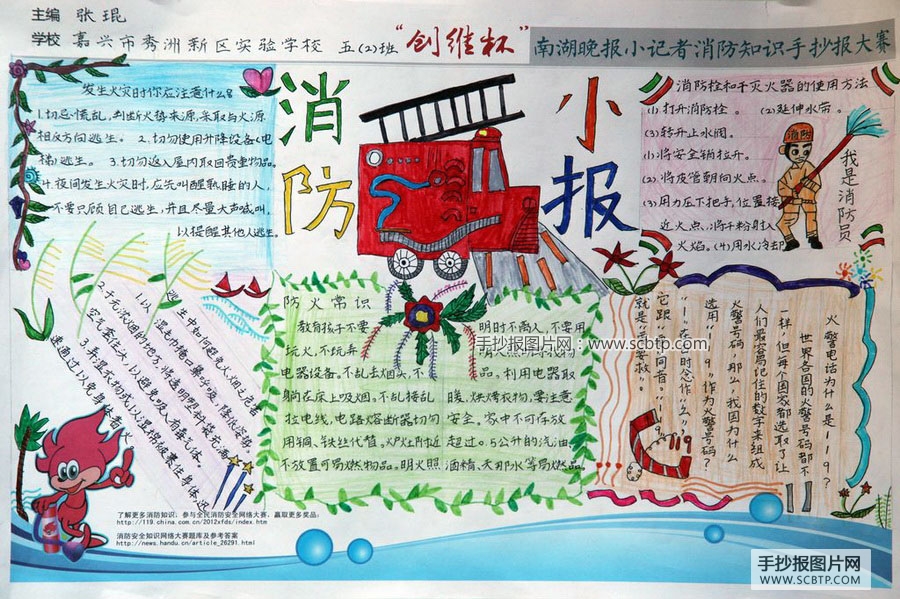 主编 张琨
学校 嘉兴市秀洲新区实验学校 五(2)班
“创维杯”南湖晚报小记者消防知识手抄报大赛
消防
小报
发生火灾时你应注意什么？
1.切忌慌乱,判断火势来源,采取与火源
相反方向逃生。2.切勿使用升降设备(电
梯)逃生。3.切勿返入屋内取回贵重物品。
4.夜间发生火灾时,应先叫醒熟睡的人,
不要只顾自己逃生,并且尽量大声喊叫,
以提醒其他人逃生。
消防栓和干灭火器的使用方法
(1).打开消防栓。(2)延伸水带。
(3)转开止水阀。
(1).将安全销拉开。
(2).将皮管朝向火点。
(3).用力压下把手,
近火点,将干粉射入
火焰。(4)用水冷却
消防
我是消防员
防火常识
教育孩子不要
玩火,不玩弄
电器设备。不乱丢烟头,不
躺在床上吸烟。不乱接乱
拉电线,电路熔断器切勿
用铜、铁丝代替。火炉灶附近
不放置可易燃物品。明火照
明时不离人,不要用
品。利用电器取
暖、烘烤衣物,要注意
安全。家中不可存放
超过0.5公升的汽油、
酒精、天那水等易燃品。
火警电话为什么是119?
世界各国的火警号码都不
一样,但每个国家都选取了让
人们最容易记住的数字来组成
火警号码,那么,我国为什么
选用“119”作为火警号码?
119
手抄报图片网:www.scbtp.com
了解更多消防知识,参与全民消防安全网络大赛,赢取更多奖品:
http://119.china.com.cn/2012xfds/index.htm
消防安全知识网络大赛题库及参考答案
http://news.handu.cn/article_26291.html
手抄报图片网
WWW.SCBTP.COM